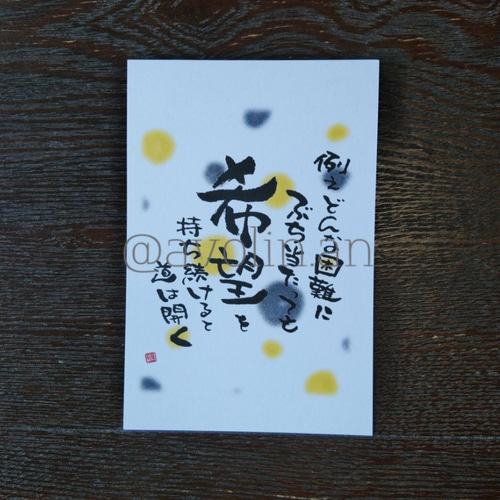 例えどんな困難に
ぶち当たっても
希望を
持ち続けると
道は開く
@ayolin.an